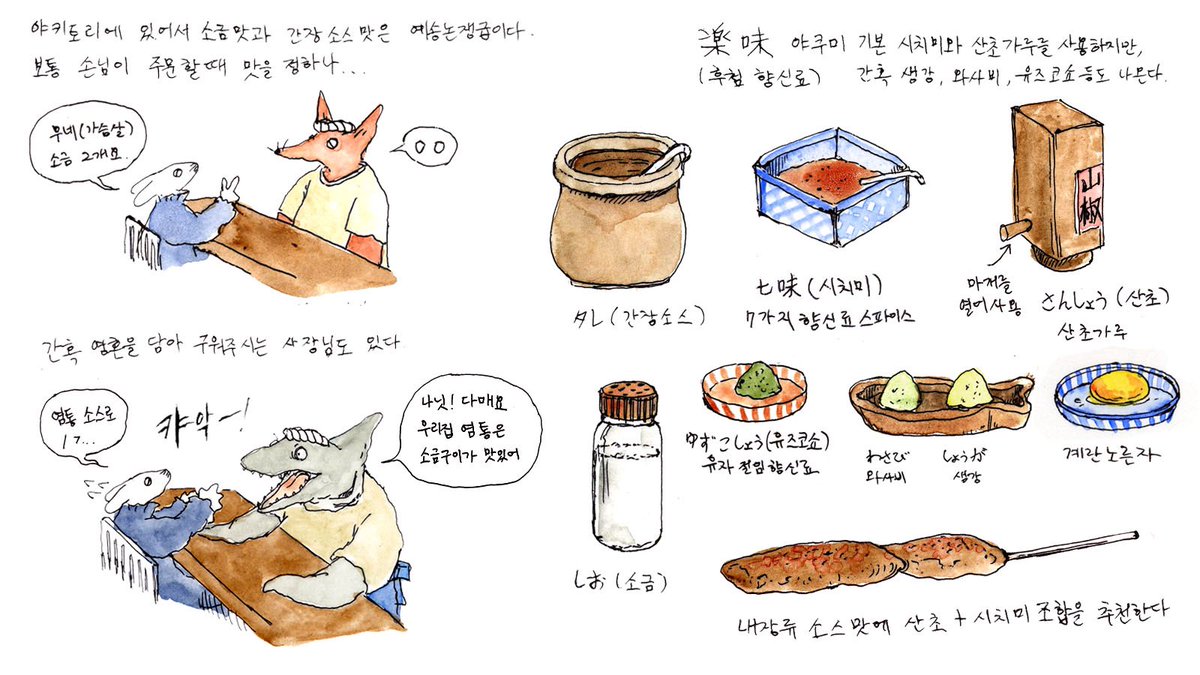 야키토리에 있어서 소금맛과 간장소스맛은 예송논쟁급이다.
보통 손님이 주문할때 맛을 정하나...
무네(가슴살)
소금 2개요.
ㅇㅇ
간혹 영혼을 담아 구워주시는 사장님도 있다
염통 소스로
1ㄱ...
캬악~!
나닛! 다매요
우리집 염통은
소금구이가 맛있어
楽味 야쿠미 기본 시치미와 산초가루를 사용하지만,
(후첨 향신료) 간혹 생강, 와사비, 유즈코쇼등도 나온다.
タレ (간장소스)
七味 (시치미)
7가지 향신료 스파이스
山椒
마개를
열어사용
さんしょう (산초)
산초가루
しお (소금)
ゆずこしょう(유즈코쇼)
유자 절임 향신료
わさび
와사비
しょうが
생강
계란노른자
내장류 소스맛에 산초 + 시치미 조합을 추천한다